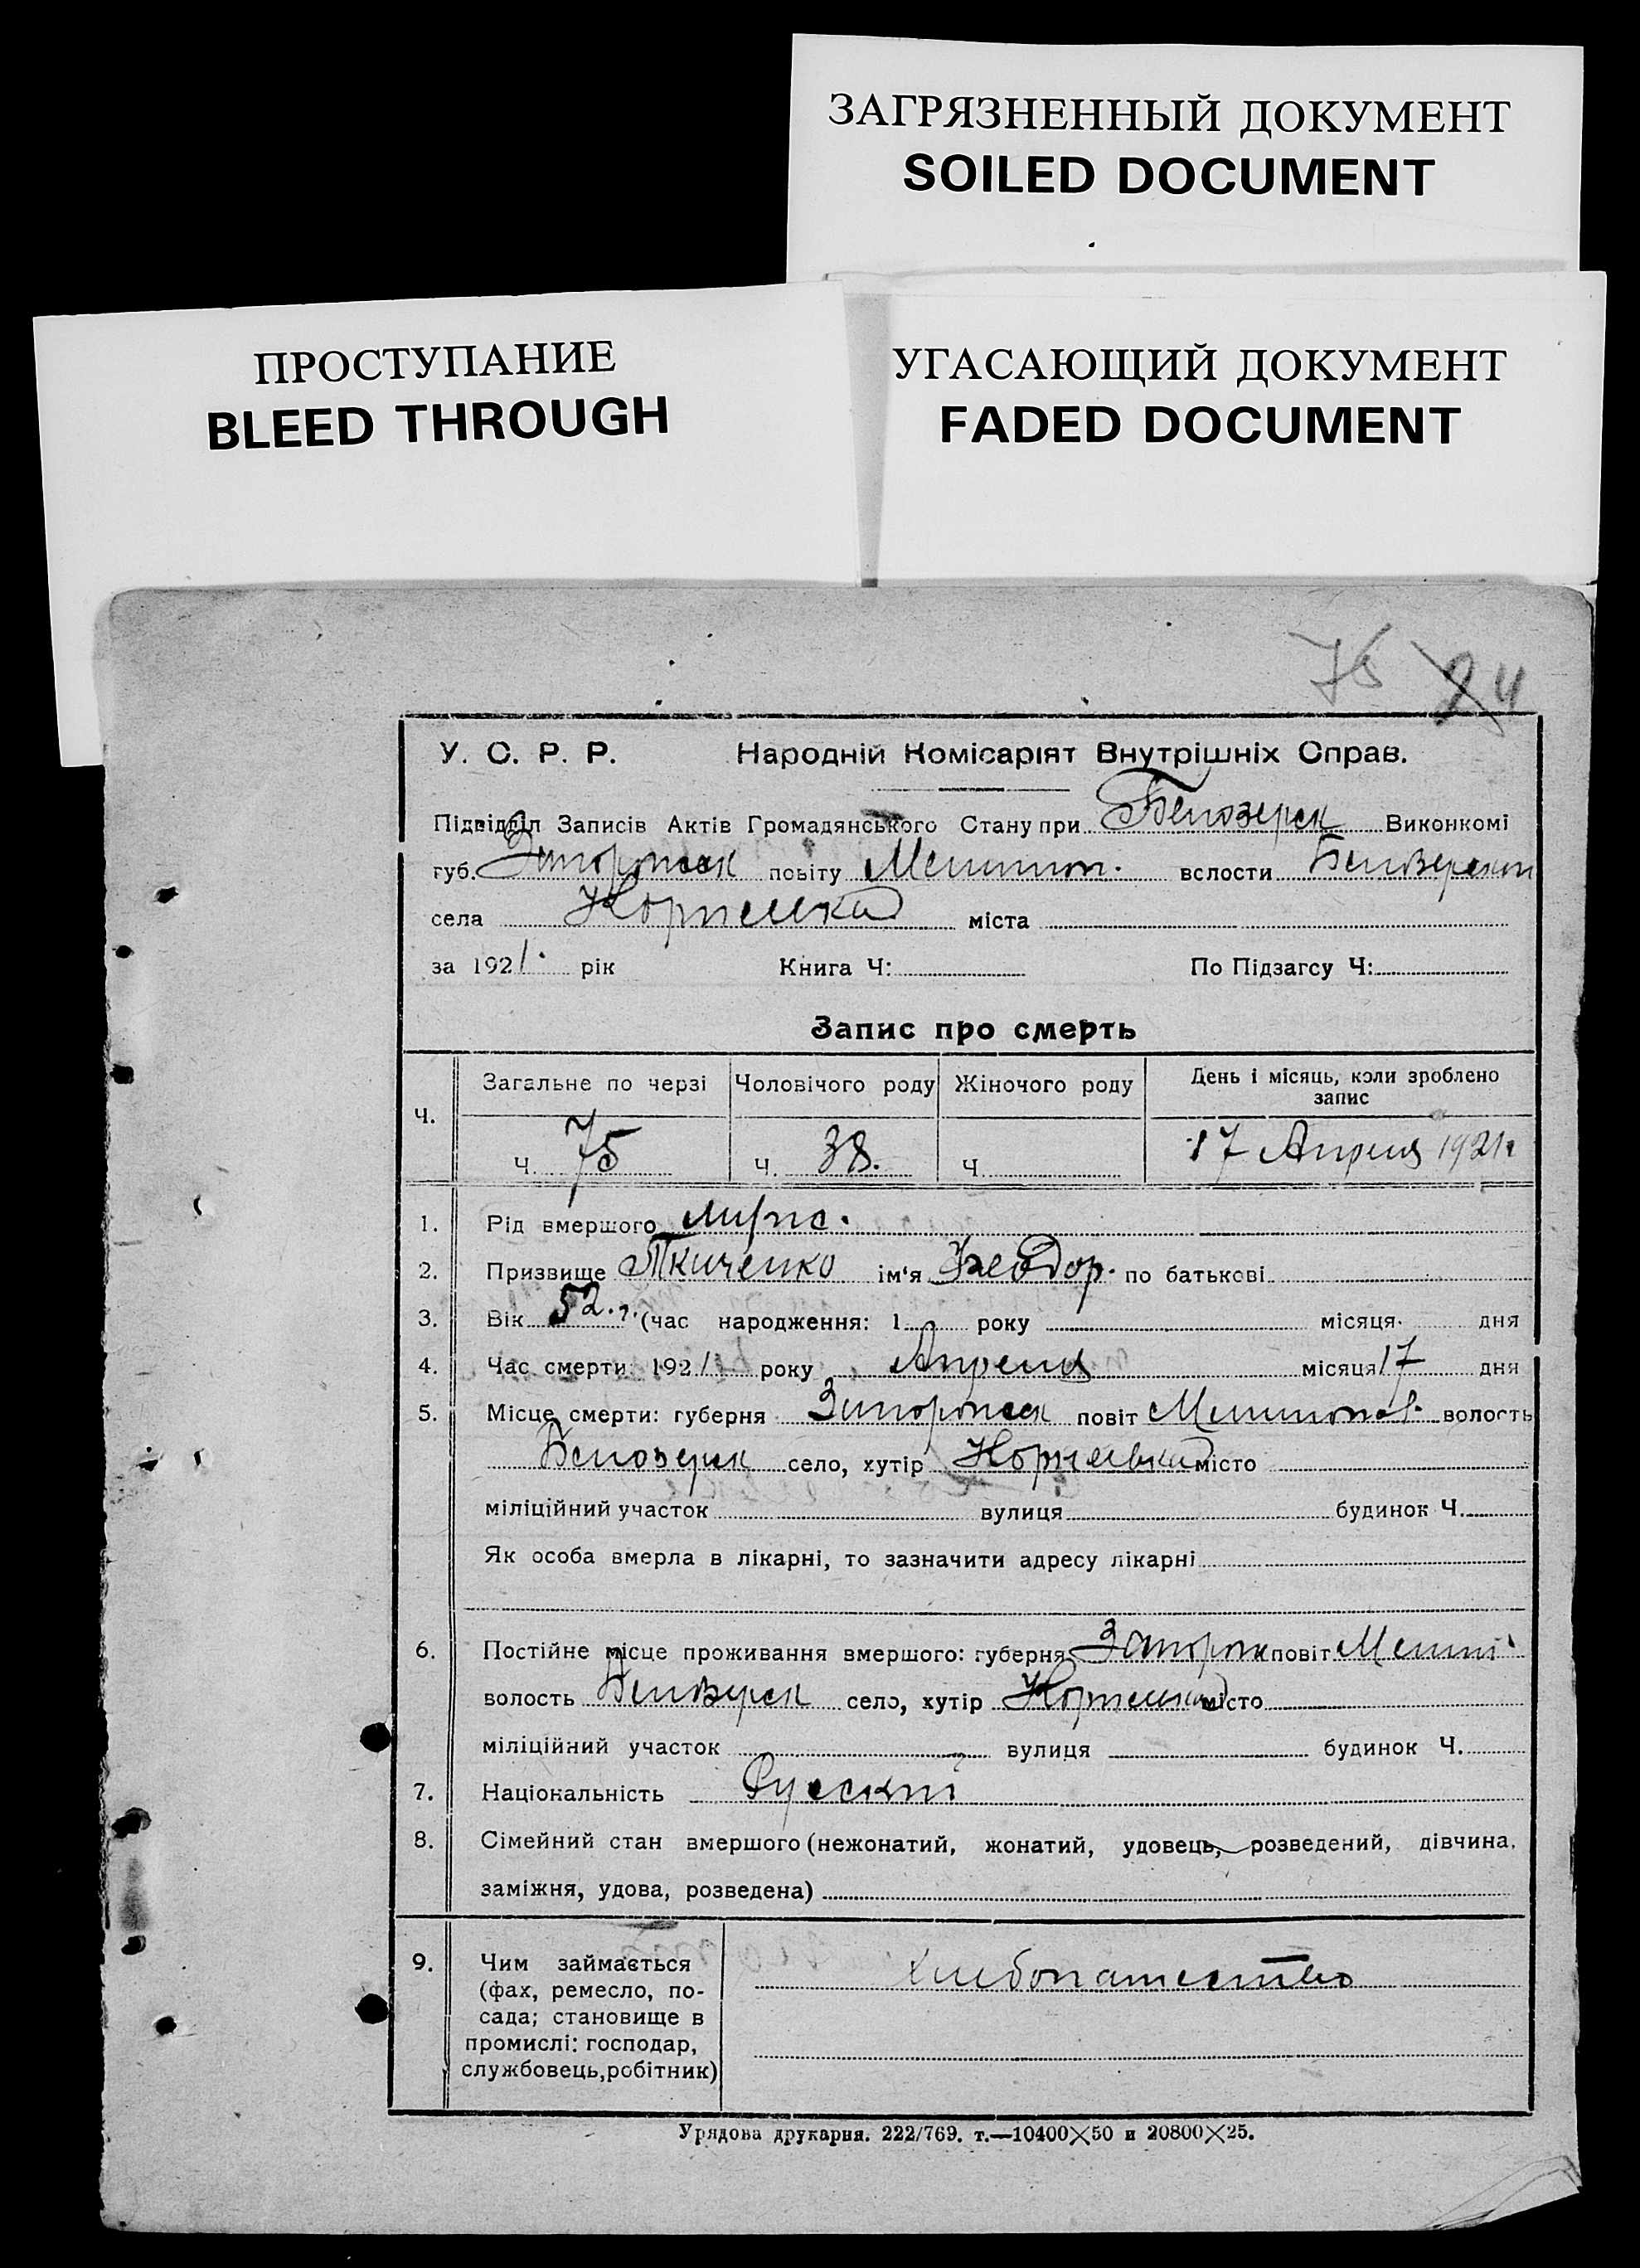 ЗАГРЯЗНЕННЫЙ ДОКУМЕНТ
SOILED DOCUMENT
ПРОСТУПАНИЕ
BLEED THROUGH
УГАСАЮЩИЙ ДОКУМЕНТ
FADED DOCUMENT
75 24
У. С. Р. Р. Народній Комісаріят Внутрішніх Справ.
Підвідділ Записів Актів Громадянського Стану при Белозерск Виконкомі
губ. Запорожск повіту Мелитоп. волости Белозерской
села міста
за 1921. рік Книга Ч: По Підзагсу Ч:
Запис про смерть
Ч. Загальне по черзі Чоловічого роду Жіночого роду День і місяць, коли зроблено запис
Ч. 75 Ч. 38. Ч. 17 Апреля 1921 г.
1. Рід вмершого
2. Призвище Ткаченко ім'я Феодор. по батькові
3. Вік 52. г. (час народження: 1 року місяця дня
4. Час смерти: 1921 року Апреля місяця 17 дня
5. Місце смерти: губерня Запорожск повіт Мелитопол. волость
Белозерск село, хутір місто
міліційний участок вулиця будинок Ч.
Як особа вмерла в лікарні, то зазначити адресу лікарні
6. Постійне місце проживання вмершого: губерня Запорож повіт Мелит
волость Белозерск село, хутір місто
міліційний участок вулиця будинок Ч.
7. Національність Русский
8. Сімейний стан вмершого (нежонатий, жонатий, удовець, розведений, дівчина,
заміжня, удова, розведена)
9. Чим займається хлебопашество
(фах, ремесло, по-
сада; становище в
промислі: господар,
службовець, робітник)
Урядова друкарня. 222/769. т.—10400×50 и 20800×25.